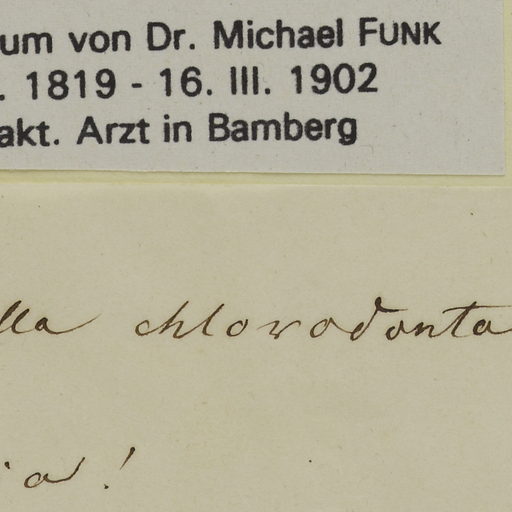 um von Dr. Michael FUNK
. 1819 - 16. III. 1902
akt. Arzt in Bamberg
lla chlorodonta
ia!